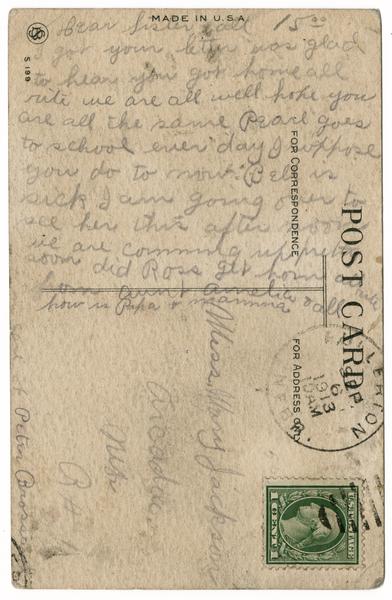 MADE IN U.S.A.
S 199
15.00
Dear Sister & all
I got your letter was glad
to hear you got home all
rite we are all well hope you
are all the same Pearl goes
to school ever day I suppose
you do to now. is
sick I am going over to
see her this after noon
we are comming up
soon did Ross get home
from aunt & all
how is Papa & mamma
POST CARD
FOR CORRESPONDENCE
FOR ADDRESS ONLY
SEP
6
1913
AM
NEBR.
Miss Mary Jackson
Arcadia
Neb
R A 1
U.S. POSTAGE
1 CENT 1
Peter